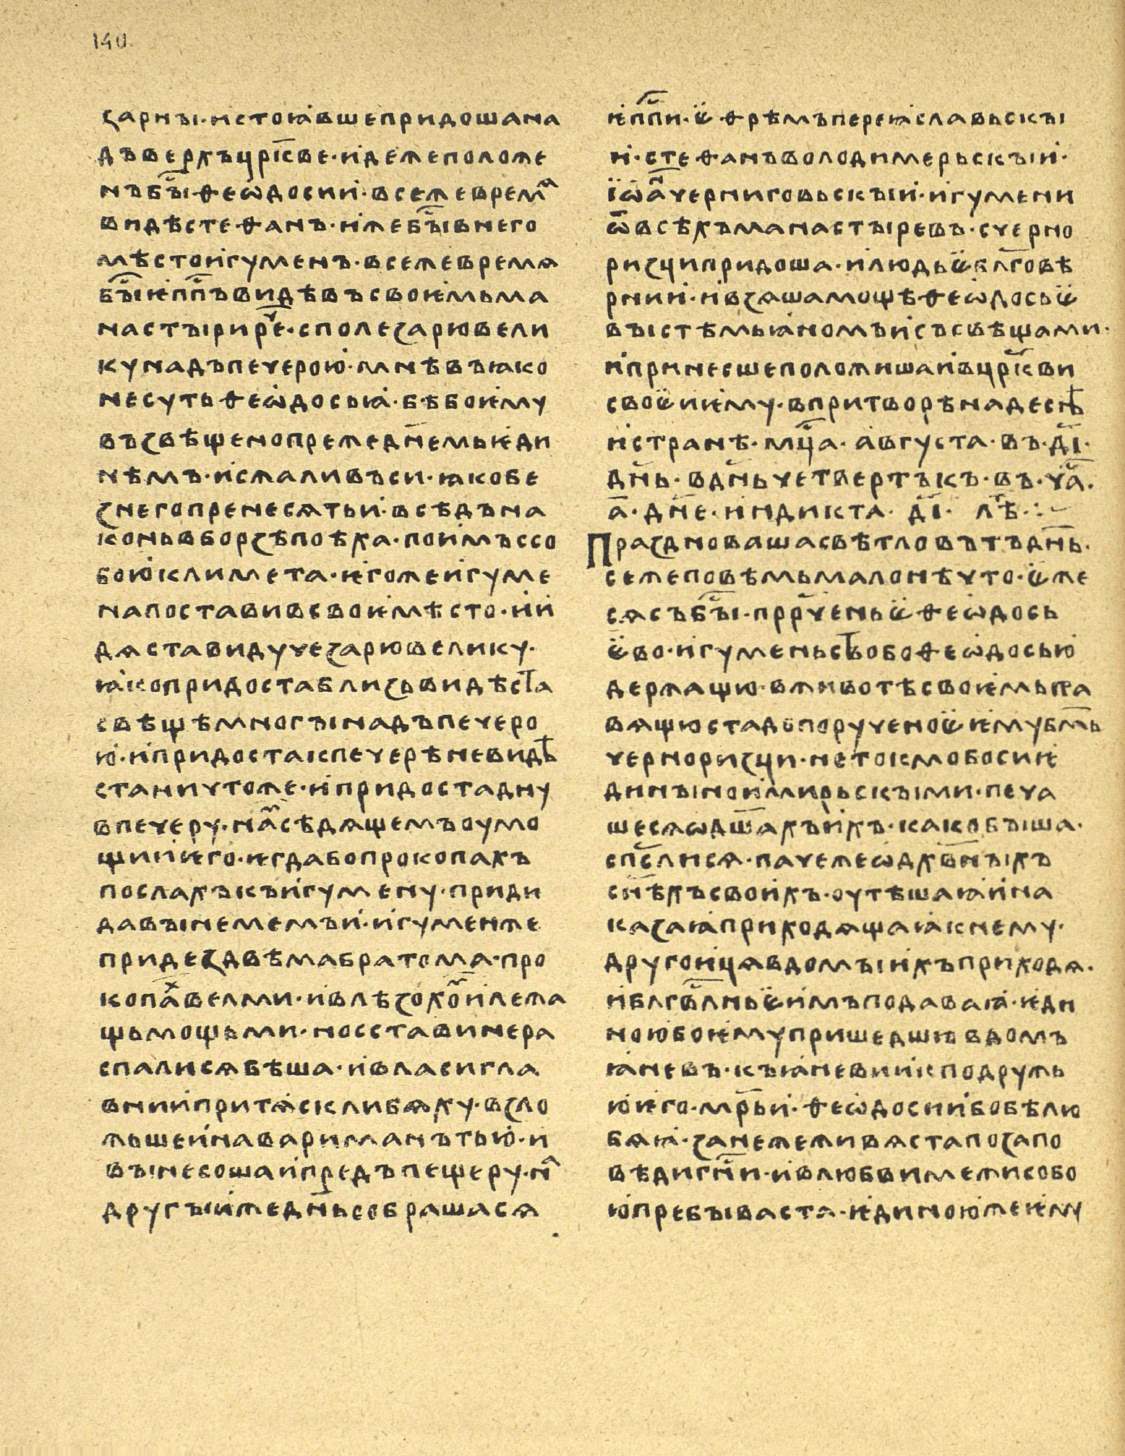 140
зарны· и стоıавше придоша на
дъ верхъ црк҃ве· идеже положе
нъ бы҃ феѡдосии· в се же времѧ
видѣ стефанъ· иже бы҃ въ него
мѣсто игуменъ· в се же времѧ
бы҃ єпп҃ъ видѣвъ своємь ма
настыри рч҃е· с поле зарю вели
ку надъ печерою· мнѣвъ ıако
несуть феѡдосьıа· бѣ бо єму
възвѣщено преже днемь єди
нѣмъ· и сжаливъси· ıако бе
з него пренесѧть и· всѣдъ на
конь вборзѣ поѣха· поимъ с со
бою климета· єгоже игуме
на постави в своє мѣсто· и и
дѧста видуче зарю велику·
ıако придоста близь видѣста
свѣщѣ многы надъ печеро
ю· и придоста к печерѣ не видѣ
ста ничтоже· и придоста дну
в печеру· на(м) сѣдѧщемъ оу мо
щии єго· єгда бо прокопахъ
послахъ къ игумену· приди
да вынемемъ и· игумен же
приде з двѣма братома· про
копа(х) велми· и влѣзохо(м) и лежа
щь мощьми· но сстави не ра
спалисѧ бѣша· и власи гла
внии притѧскли бѧху· взло
жьше и на вариманътью· и
вынесоша и предъ пещеру· н(а)
другыи же днь собрашасѧ
єпп҃и· ѡ҃ фрѣмъ переıаславьскы
и· стефанъ володимерьскыи·
іѡа(н) черниговьскыи· игумени
ѿ всѣхъ манастыревъ· с черно
ризци придоша· и людьє блг҃овѣ
рнии· и взѧша мощѣ феѡдосьє
вы с тѣмьıаномъ и съ свѣщами·
и принесше положиша и в црк҃ви
своєи єму· в притворѣ на деснѣ
и странѣ· мц҃а· августа· въ д҃і·
дн҃ь· в дн҃ь четвертъкъ· въ ча҃(с)·
а҃· дн҃е· индикта· д҃і· лѣ(т)
Празднова ша свѣтло въ тъ дн҃ь·
се же повѣмь мало нѣчто· єже
сѧ събы(с)· прр҃ченьє феѡдось
єво· игуменьство бо феѡдосью
держащю· в животѣ своємь пра
вѧщю стадо порученоє єму бм҃ь
черноризци· не токмо бо си є
дины но и мирьскыми· печа
шесѧ ѡ дш҃ахъ ихъ· како быша·
спс҃лисѧ· паче же ѡ дх҃вныхъ
сн҃ѣхъ своихъ· оутѣшаıа и на
казаıа приходѧщаıа к нему·
другоици ѧ в домы ихъ приходѧ·
и блг҃влньє имъ подаваıа· єди
ною бо єму пришедшю в домъ
ıаневъ· къ ıаневи и к подружь
ю єго· мр҃ьи· феѡдосии бо бѣ лю
бѧ ıа· занеже живѧста по запо
вѣди гн҃и· и в любви межи собо
ю пребываста· єдиною же єму